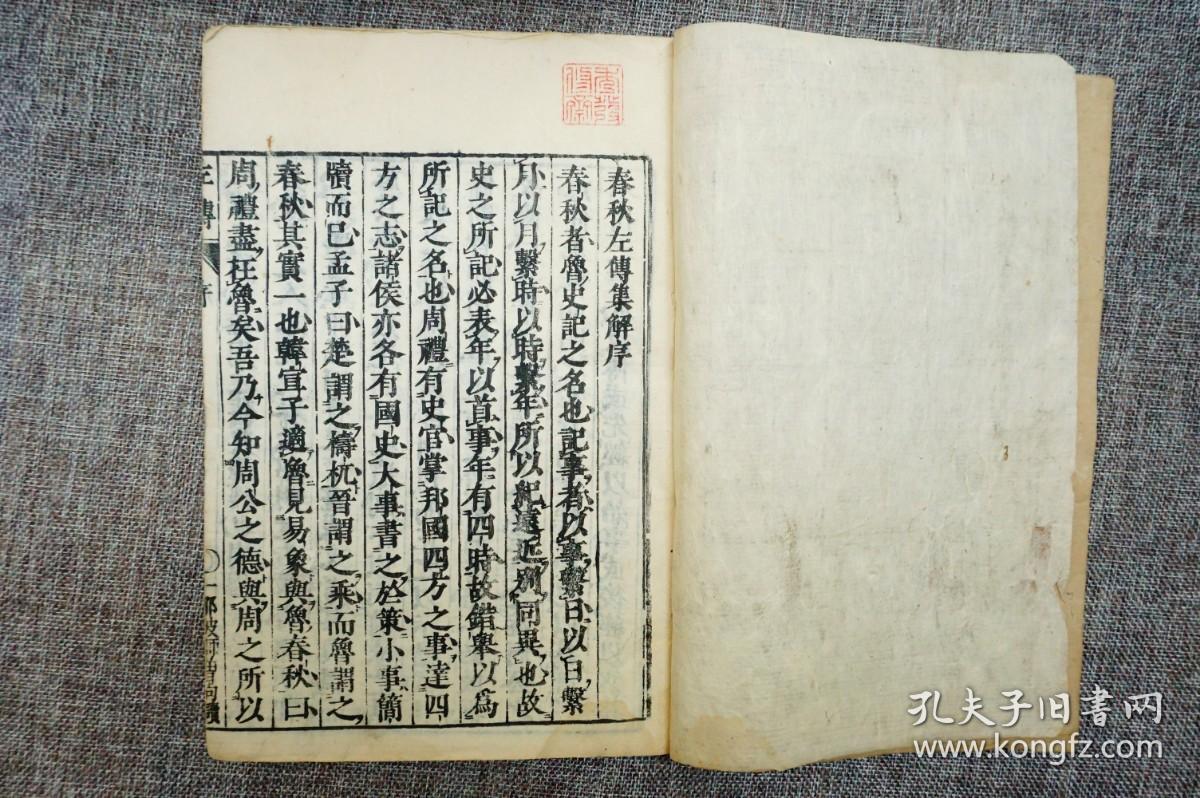 春秋左傳集解序
春秋者魯史記之名也記事者以事繫日以日繫
月以月繫時以時繫年所以紀遠近別同異也故
史之所記必表年以首事年有四時故錯舉以爲
所記之名也周禮有史官掌邦國四方之事達四
方之志諸侯亦各有國史大事書之於策小事簡
牘而已孟子曰楚謂之檮杌晉謂之乘而魯謂之
春秋其實一也韓宣子適魯見易象與魯春秋曰
周禮盡在魯矣吾乃今知周公之德與周之所以
左傳 序 一
孔夫子旧书网
www.kongfz.com